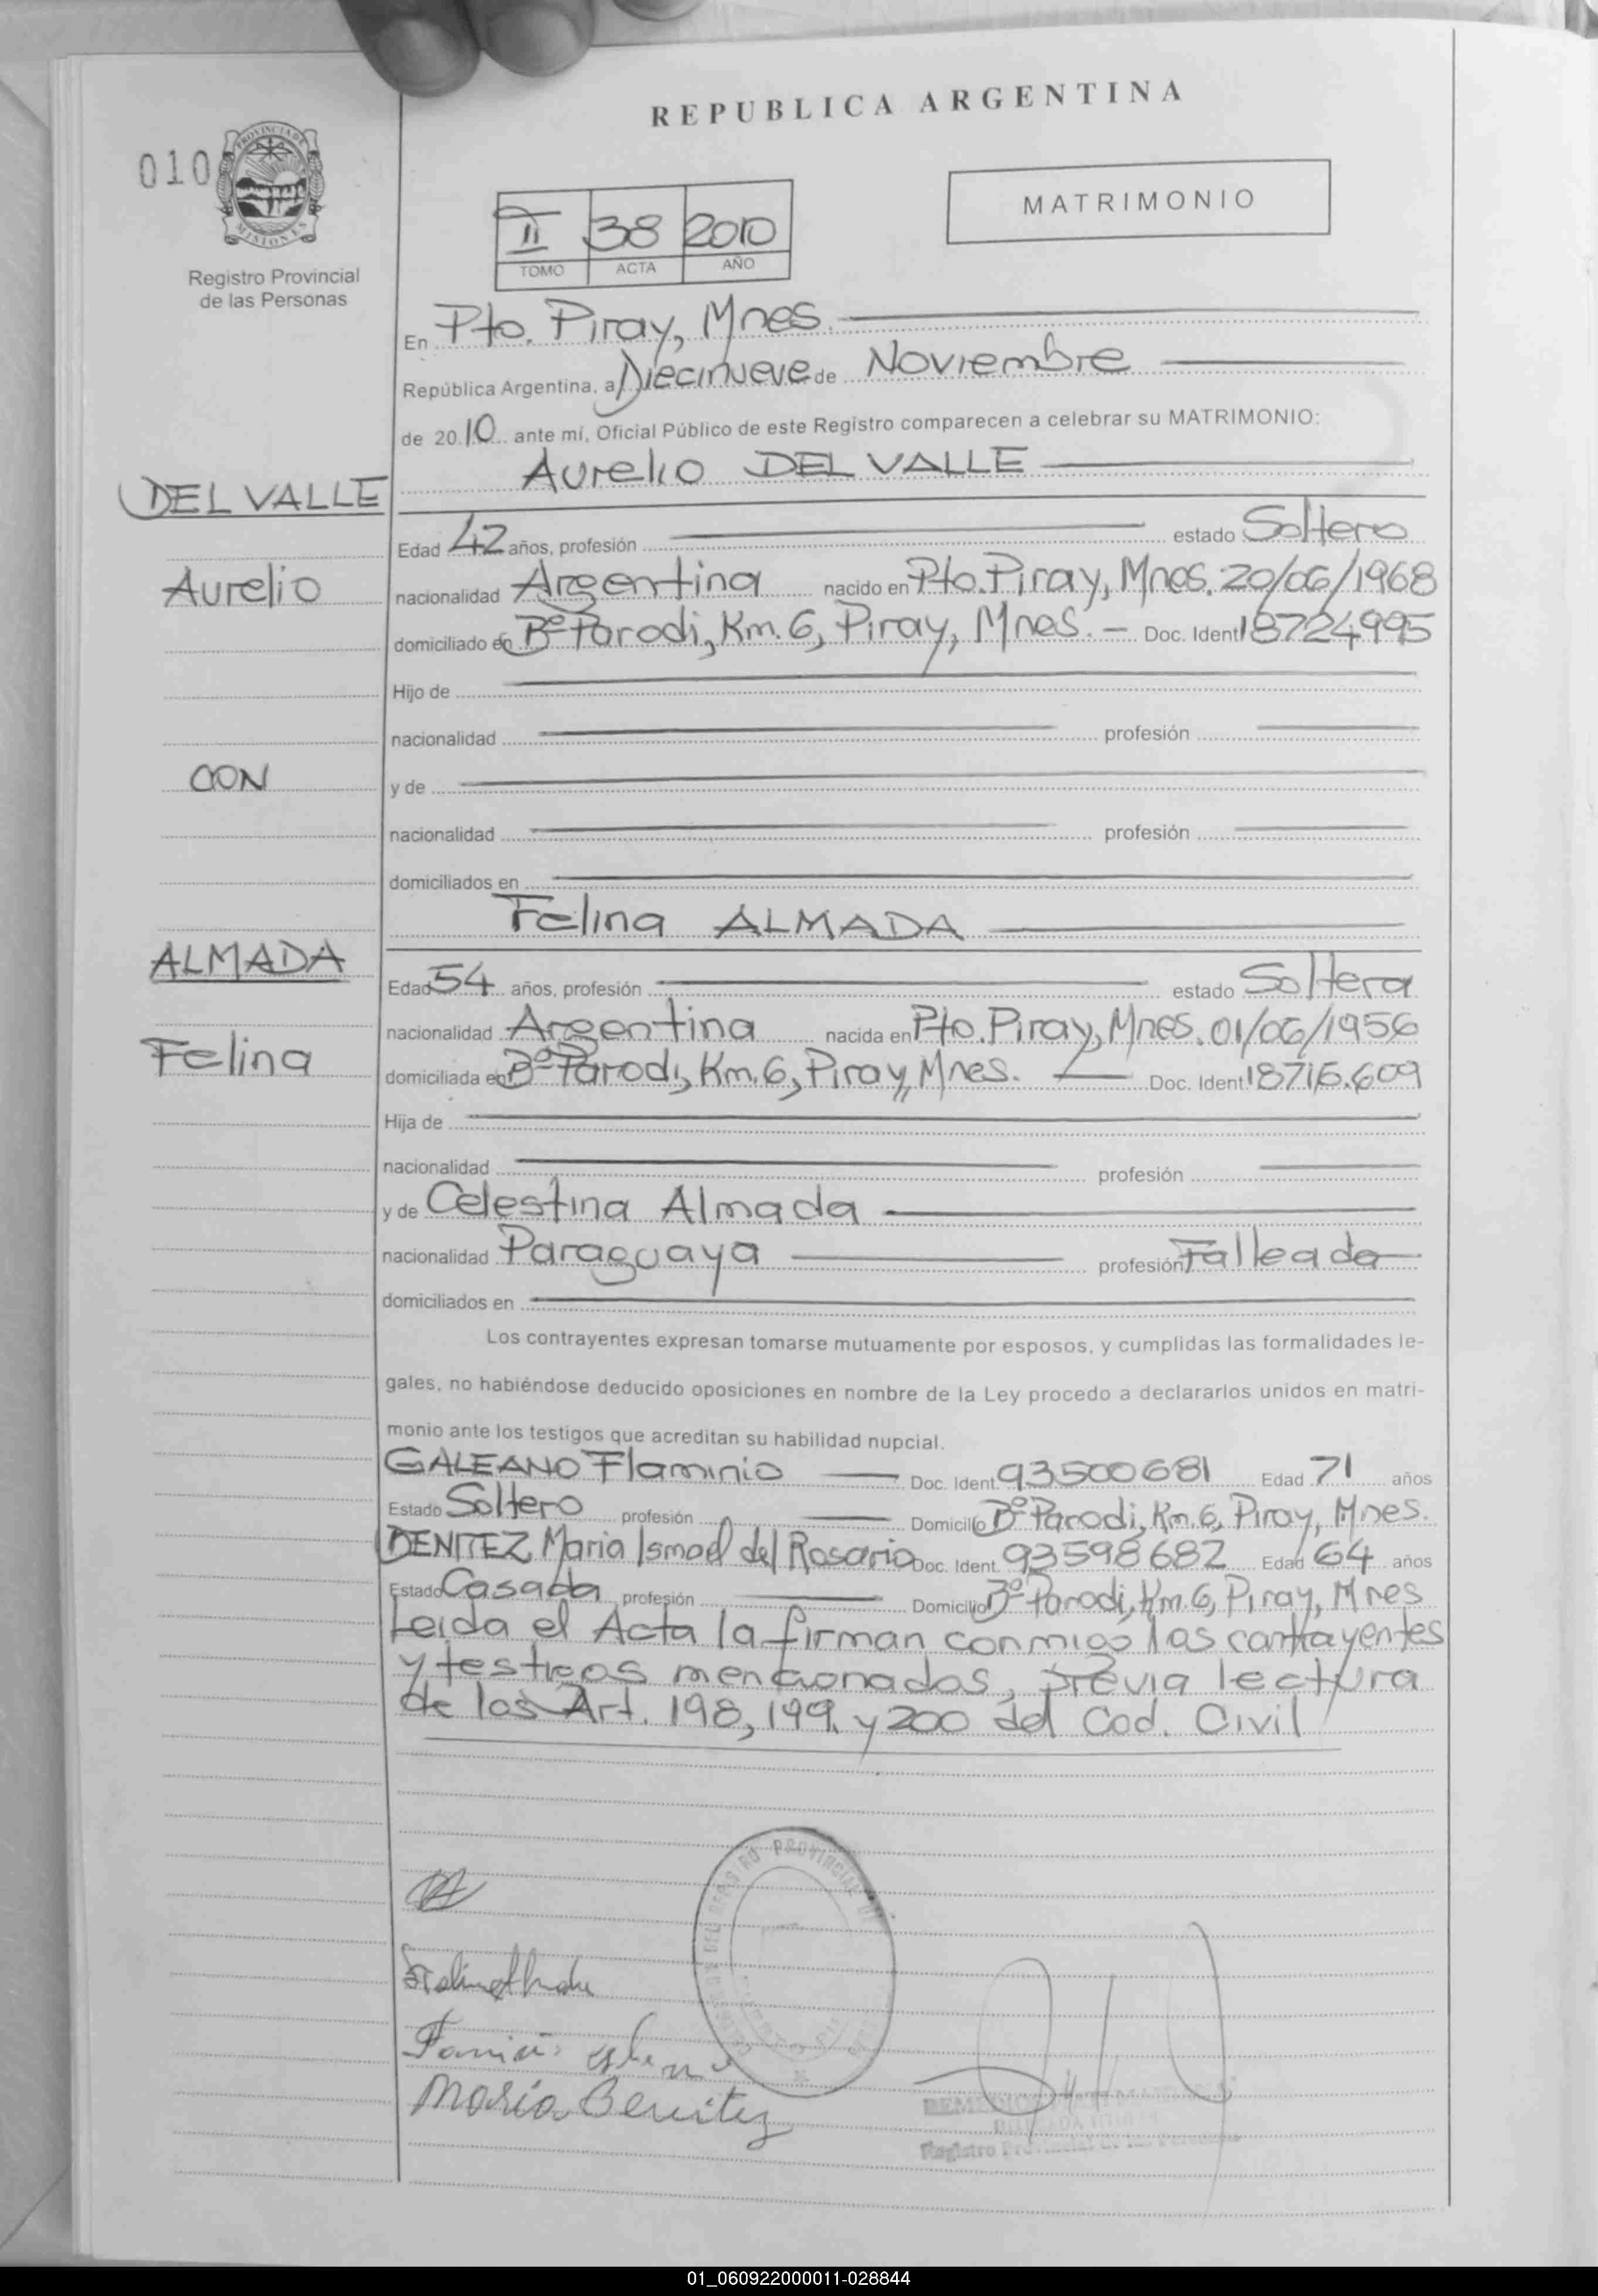 REPUBLICA ARGENTINA
010
PROVINCIA DE
MISIONES
Registro Provincial
de las Personas
MATRIMONIO
II 38 2010
TOMO ACTA AÑO
En Pto. Piray, Mnes.
República Argentina, a Diecinueve de Noviembre
de 2010 ante mí, Oficial Público de este Registro comparecen a celebrar su MATRIMONIO:
Aurelio DEL VALLE
DEL VALLE
Edad 42 años, profesión estado Soltero
Aurelio
nacionalidad Argentina nacido en Pto. Piray, Mnes. 20/06/1968
domiciliado en Bº Parodi, Km. 6, Piray, Mnes. - Doc. Ident 18724995
Hijo de
nacionalidad profesión
CON
y de
nacionalidad profesión
domiciliados en
Felina ALMADA
ALMADA
Edad 54 años, profesión estado Soltera
nacionalidad Argentina nacida en Pto. Piray, Mnes. 01/06/1956
Felina
domiciliada en Bº Parodi, Km. 6, Piray, Mnes. Doc. Ident 18716.609
Hija de
nacionalidad profesión
y de Celestina Almada
nacionalidad Paraguaya profesión Falleada
domiciliados en
Los contrayentes expresan tomarse mutuamente por esposos, y cumplidas las formalidades le-
gales, no habiéndose deducido oposiciones en nombre de la Ley procedo a declararlos unidos en matri-
monio ante los testigos que acreditan su habilidad nupcial.
GALEANO Flaminio Doc. Ident. 93500681 Edad 71 años
Estado Soltero profesión Domicilio Bº Parodi, Km. 6, Piray, Mnes.
BENITEZ Maria Ismael del Rosario Doc. Ident. 93598682 Edad 64 años
Estado Casada profesión Domicilio Bº Parodi, Km. 6, Piray, Mnes
Leida el Acta la firman conmigo los contrayentes
y testigos mencionados, previa lectura
de los Art. 198, 199. y 200 del Cod. Civil
DEL REGISTRO PROVINCIAL DE
María Benitez
Registro Provincial de las Personas
01_060922000011-028844